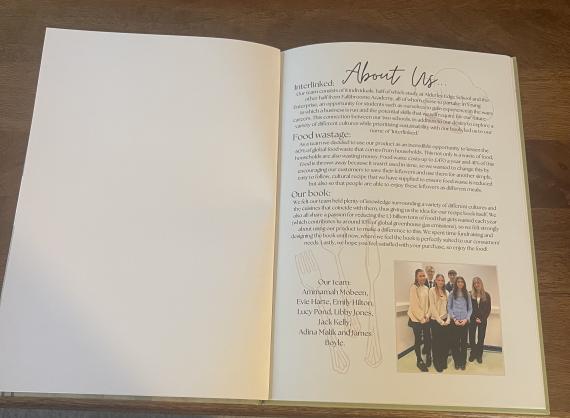 About Us...
Interlinked:
Our team consists of 11 individuals, half of which study at Alderley Edge School and the
other half from Fallibroome Academy, all of whom chose to partake in Young
Enterprise, an opportunity for students such as ourselves to gain experience in the ways
in which a business is run and the potential skills that we'll require for our future
careers. This connection between our two schools, in addition to our desire to explore a
variety of different cultures while prioritising sustainability with our book, led us to our
name of 'Interlinked.'
Food wastage:
As a team we decided to use our product as an incredible opportunity to lessen the
60% of global food waste that comes from households. This not only is a waste of food,
households are also wasting money. Food waste costs up to £470 a year and 41% of this
food is thrown away because it wasn't used in time, so we wanted to change this by
encouraging our customers to save their leftovers and use them for another simple,
easy to follow, cultural recipe that we have supplied to ensure food waste is reduced
but also so that people are able to enjoy these leftovers as different meals.
Our book:
We felt our team held plenty of knowledge surrounding a variety of different cultures and
the cuisines that coincide with them, thus giving us the idea for our recipe book itself. We
also all share a passion for reducing the 1.3 billion tons of food that gets wasted each year
(which contributes to around 10% of global greenhouse gas emissions), so we felt strongly
about using our product to make a difference to this. We spent time fundraising and
designing the book until now, where we feel the book is perfectly suited to our consumers'
needs. Lastly, we hope you feel satisfied with your purchase, so enjoy the food!
Our team:
Ammamah Mobeen,
Evie Harte, Emily Hilton,
Lucy Pond, Libby Jones,
Jack Kelly,
Adina Malik and James
Boyle.